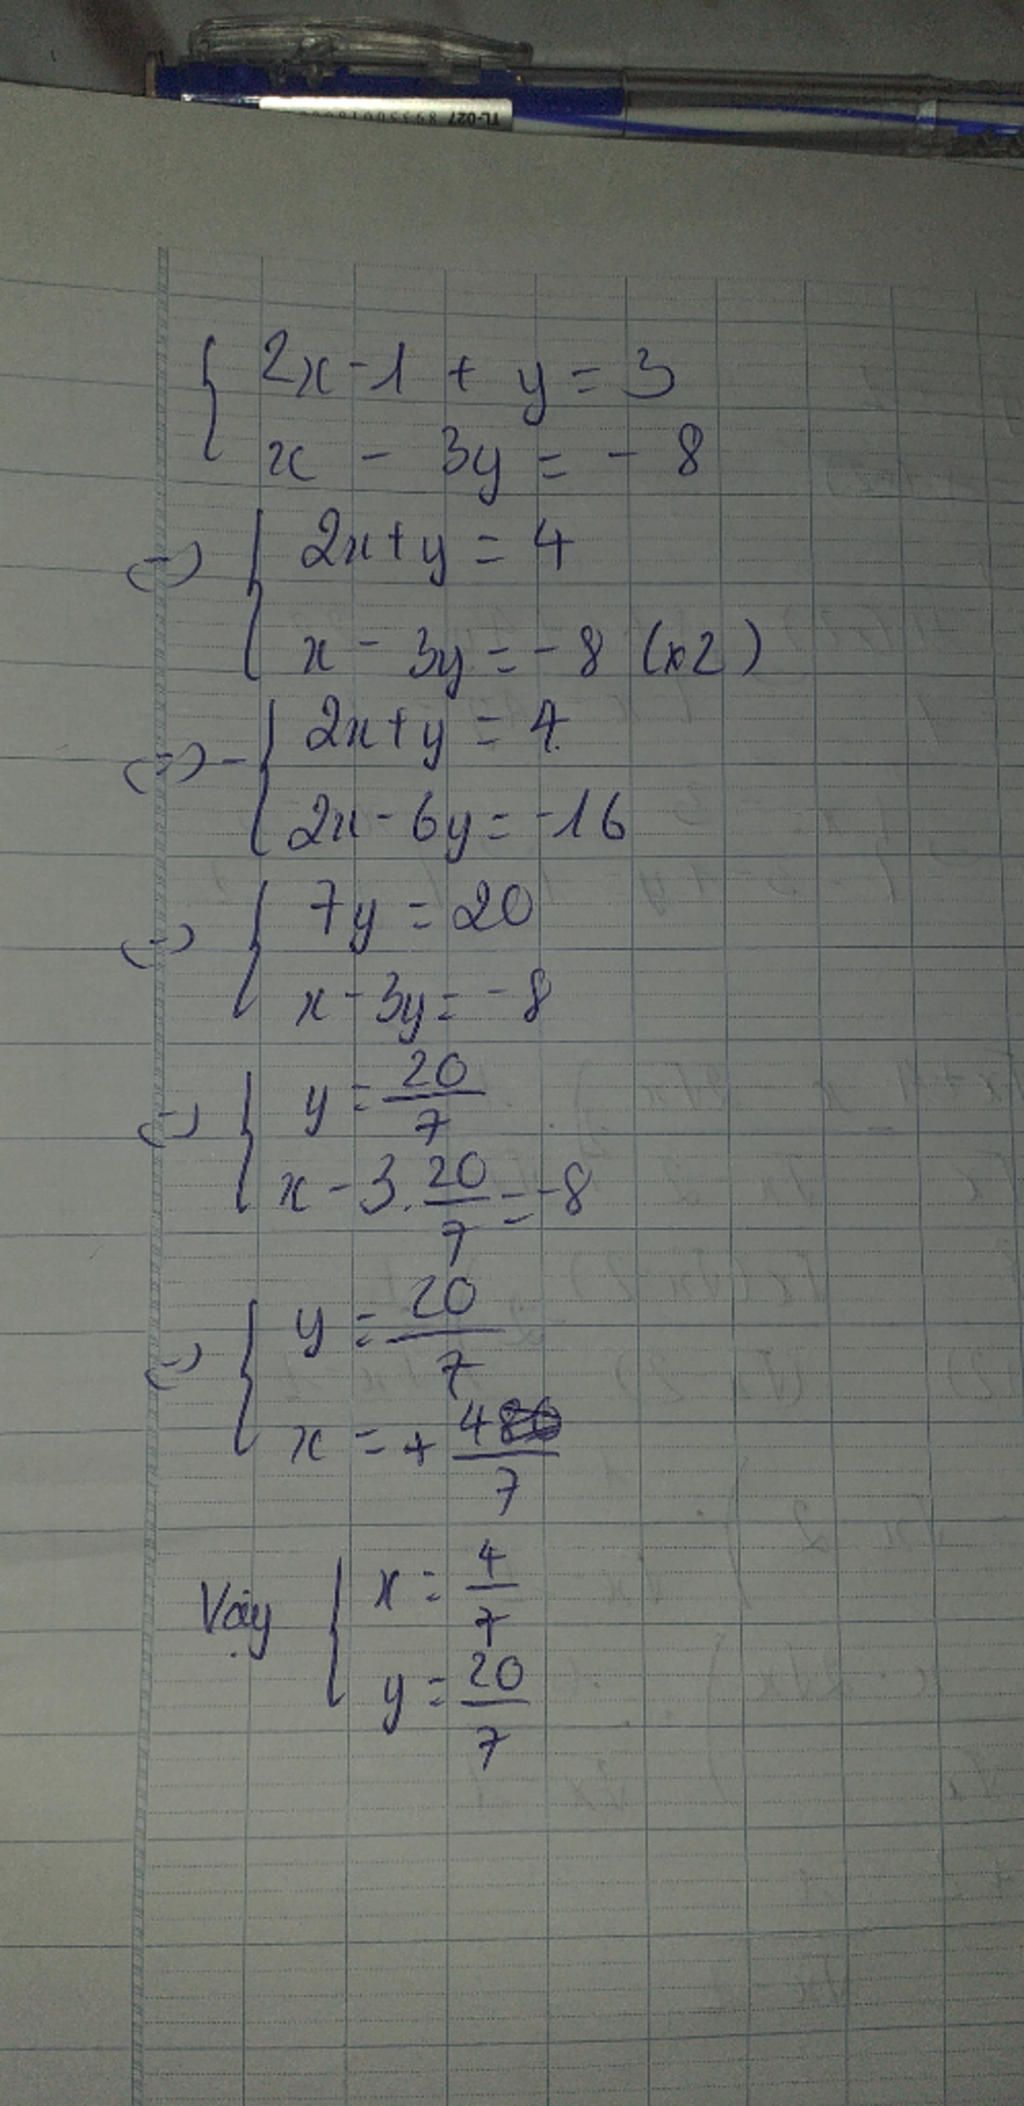 TL-027
2x - 1 + y = 3
x - 3y = - 8
(=) 2x + y = 4
x - 3y = - 8 (x2)
(=) - 2x + y = 4
2x - 6y = -16
(=) 7y = 20
x - 3y = - 8
(=) y = 20/7
x - 3. 20/7 = -8
(=) y = 20/7
x = + 4/7
Vậy x = 4/7
y = 20/7